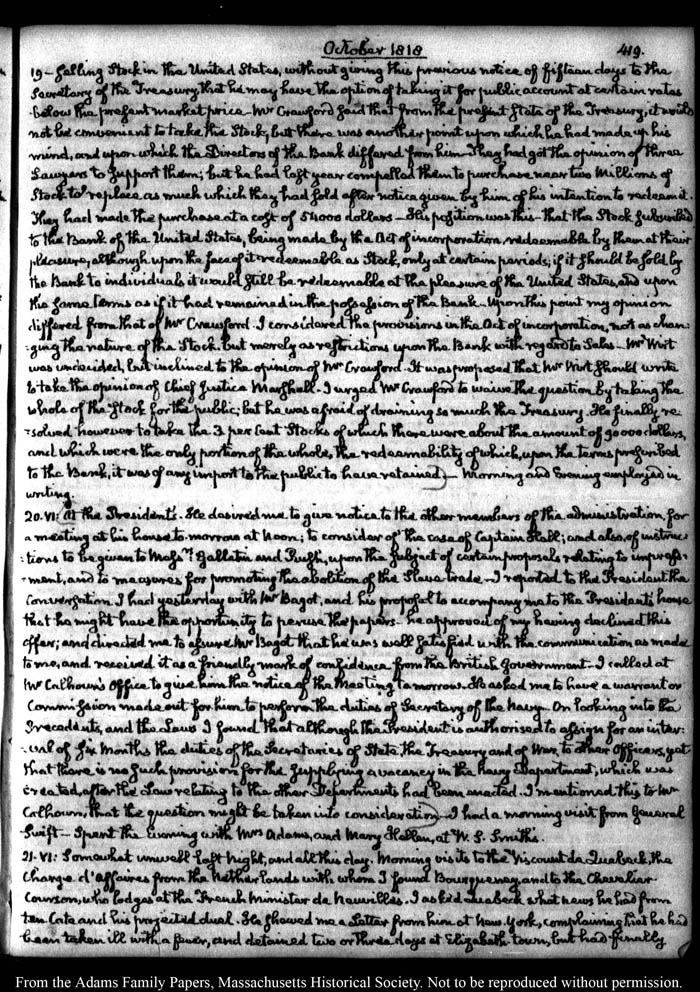 October 1818
419.
19 – selling Stock in the United States, without giving this previous notice of fifteen days to the
Secretary of the Treasury, that he may have the option of taking it for public account at certain rates
below the present market price – Mr Crawford said that from the present state of the Treasury, it would
not be convenient to take the Stock, but there was another point upon which he had made up his
mind, and upon which the Directors of the Bank differed from him – They had got the opinion of three
Lawyers to support them; but he had last year compelled them to purchase near two Millions of
Stock to replace as much which they had sold after notice given by him of his intention to redeem it.
They had made the purchase at a cost of 54000 dollars – His position was this – that the Stock subscribed
to the Bank of the United States, being made by the Act of incorporation, redeemable by them at their
pleasure, although upon the face of it redeemable as Stock, only at certain periods; if it should be sold by
the Bank to individuals it would still be redeemable at the pleasure of the United States, and upon
the same terms as if it had remained in the possession of the Bank – Upon this point my opinion
differed from that of Mr Crawford. I considered the provisions in the Act of incorporation, not as chan-
-ging the nature of the Stock but merely as restrictions upon the Bank with regard to Sales – Mr Wirt
was undecided, but inclined to the opinion of Mr Crawford. It was proposed that Mr Wirt should write
to take the opinion of Chief Justice Marshall. I urged Mr Crawford to waive the question by taking the
whole of the Stock for the public; but he was afraid of draining so much the Treasury. He finally re-
-solved however to take the 3 per Cent Stocks of which there were about the amount of 90000 dollars,
and which were the only portion of the whole, the redeemability of which, upon the terms prescribed
to the Bank, it was of any import to the public to have retained) – Morning and Evening employed in
writing.
20. VI: At the President's. He desired me to give notice to the other members of the administration for
a meeting at his house to-morrow at Noon; to consider of the case of Captain Hall; and also, of instruc-
-tions to be given to Messrs Gallatin and Rush, upon the subject of certain proposals relating to impress-
-ment, and to measures for promoting the abolition of the Slave trade – I reported to the President the
Conversation I had yesterday with Mr Bagot, and his proposal to accompany me to the President's house
that he might have the opportunity to peruse the papers – he approved of my having declined this
offer; and directed me to assure Mr Bagot that he was well satisfied with the communication as made
to me, and received it as a friendly mark of confidence from the British Government – I called at
Mr Calhoun's Office to give him the notice of the Meeting to-morrow. He asked me to have a warrant or
Commission made out for him to perform the duties of Secretary of the Navy – On looking into the
Precedents, and the Laws I found that although the President is authorised to assign for an inter-
-val of six Months the duties of the Secretaries of State, the Treasury and of War, to other Officers, yet
that there is no such provision for the supplying a vacancy in the Navy Department, which was
created, after the Law relating to the other Departments had been enacted. I mentioned this to Mr
Calhoun, that the question might be taken into consideration) – I had a morning visit from General
Swift – Spent the Evening with Mrs Adams, and Mary Hellen, at W. S. Smith's.
21. VI: Somewhat unwell last Night, and all this day. Morning visits to the Viscount de Quabeck, the
Chargé d'affaires from the Netherlands with whom I found Bourqueney, and to the Chevalier
Courson, who lodges at the French Minister de Neuville's. I asked Quabeck what news he had from
ten Cate and his projected duel. He shewed me a Letter from him at New York, complaining that he had
been taken ill with a fever, and detained two or three days at Elizabeth-town, but had finally
From the Adams Family Papers, Massachusetts Historical Society. Not to be reproduced without permission.